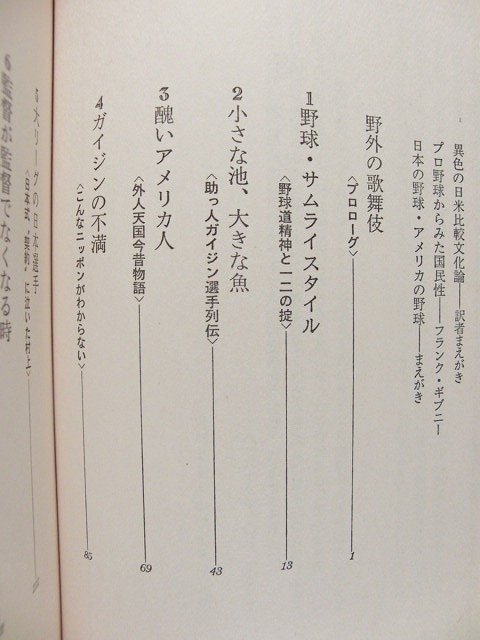 異色の日米比較文化論——訳者まえがき
プロ野球からみた国民性——フランク・ギブニー
日本の野球・アメリカの野球——まえがき
野外の歌舞伎
〈プロローグ〉 1
1 野球・サムライスタイル
〈野球道精神と一二の掟〉 13
2 小さな池、大きな魚
〈助っ人ガイジン選手列伝〉 43
3 醜いアメリカ人
〈外人天国今昔物語〉 69
4 ガイジンの不満
〈こんなニッポンがわからない〉 85
5 大リーグの日本選手
〈日本式〝契約〟に泣いた村上〉
6 監督が監督でなくなる時